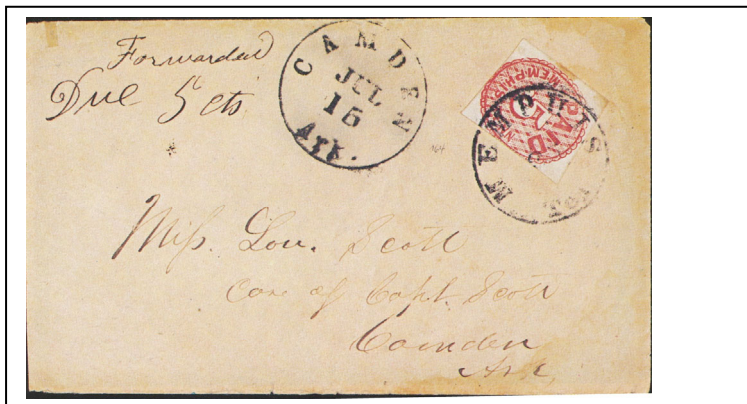 Forwarded
Due 5 cts
CAMDEN
JUL
15
Ark.
PAID
MEMPHIS
Miſs. Lou. Scott
Care of Capt. Scott
Camden
Ark